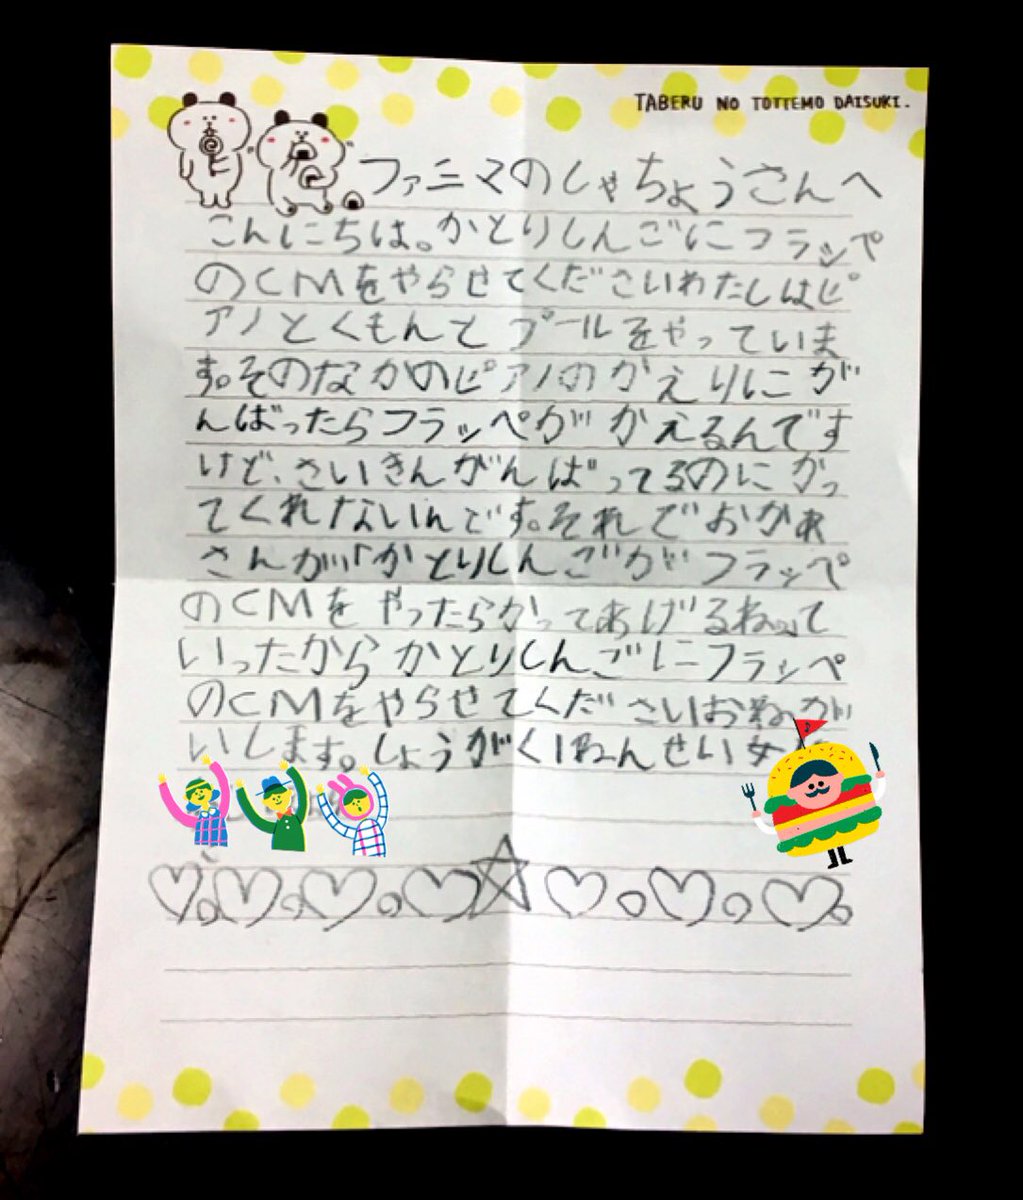 TABERU NO TOTTEMO DAISUKI.
ファニマのしゃちょうさんへ
こんにちは。かとりしんごにフラッペ
のCMをやらせてくださいわたしはピ
アノとくもんとプールをやっていま
す。そのなかのピアノのかえりにが
んばったらフラッペがかえるんです
けど、さいきんがんばってるのにかっ
てくれないんです。それでおかあ
さんが「かとりしんごがフラッペ
のCMをやったらかってあげるね。」て
いったからかとりしんごにフラッペ
のCMをやらせてくださいおねがい
いします。しょうがく1ねんせい女